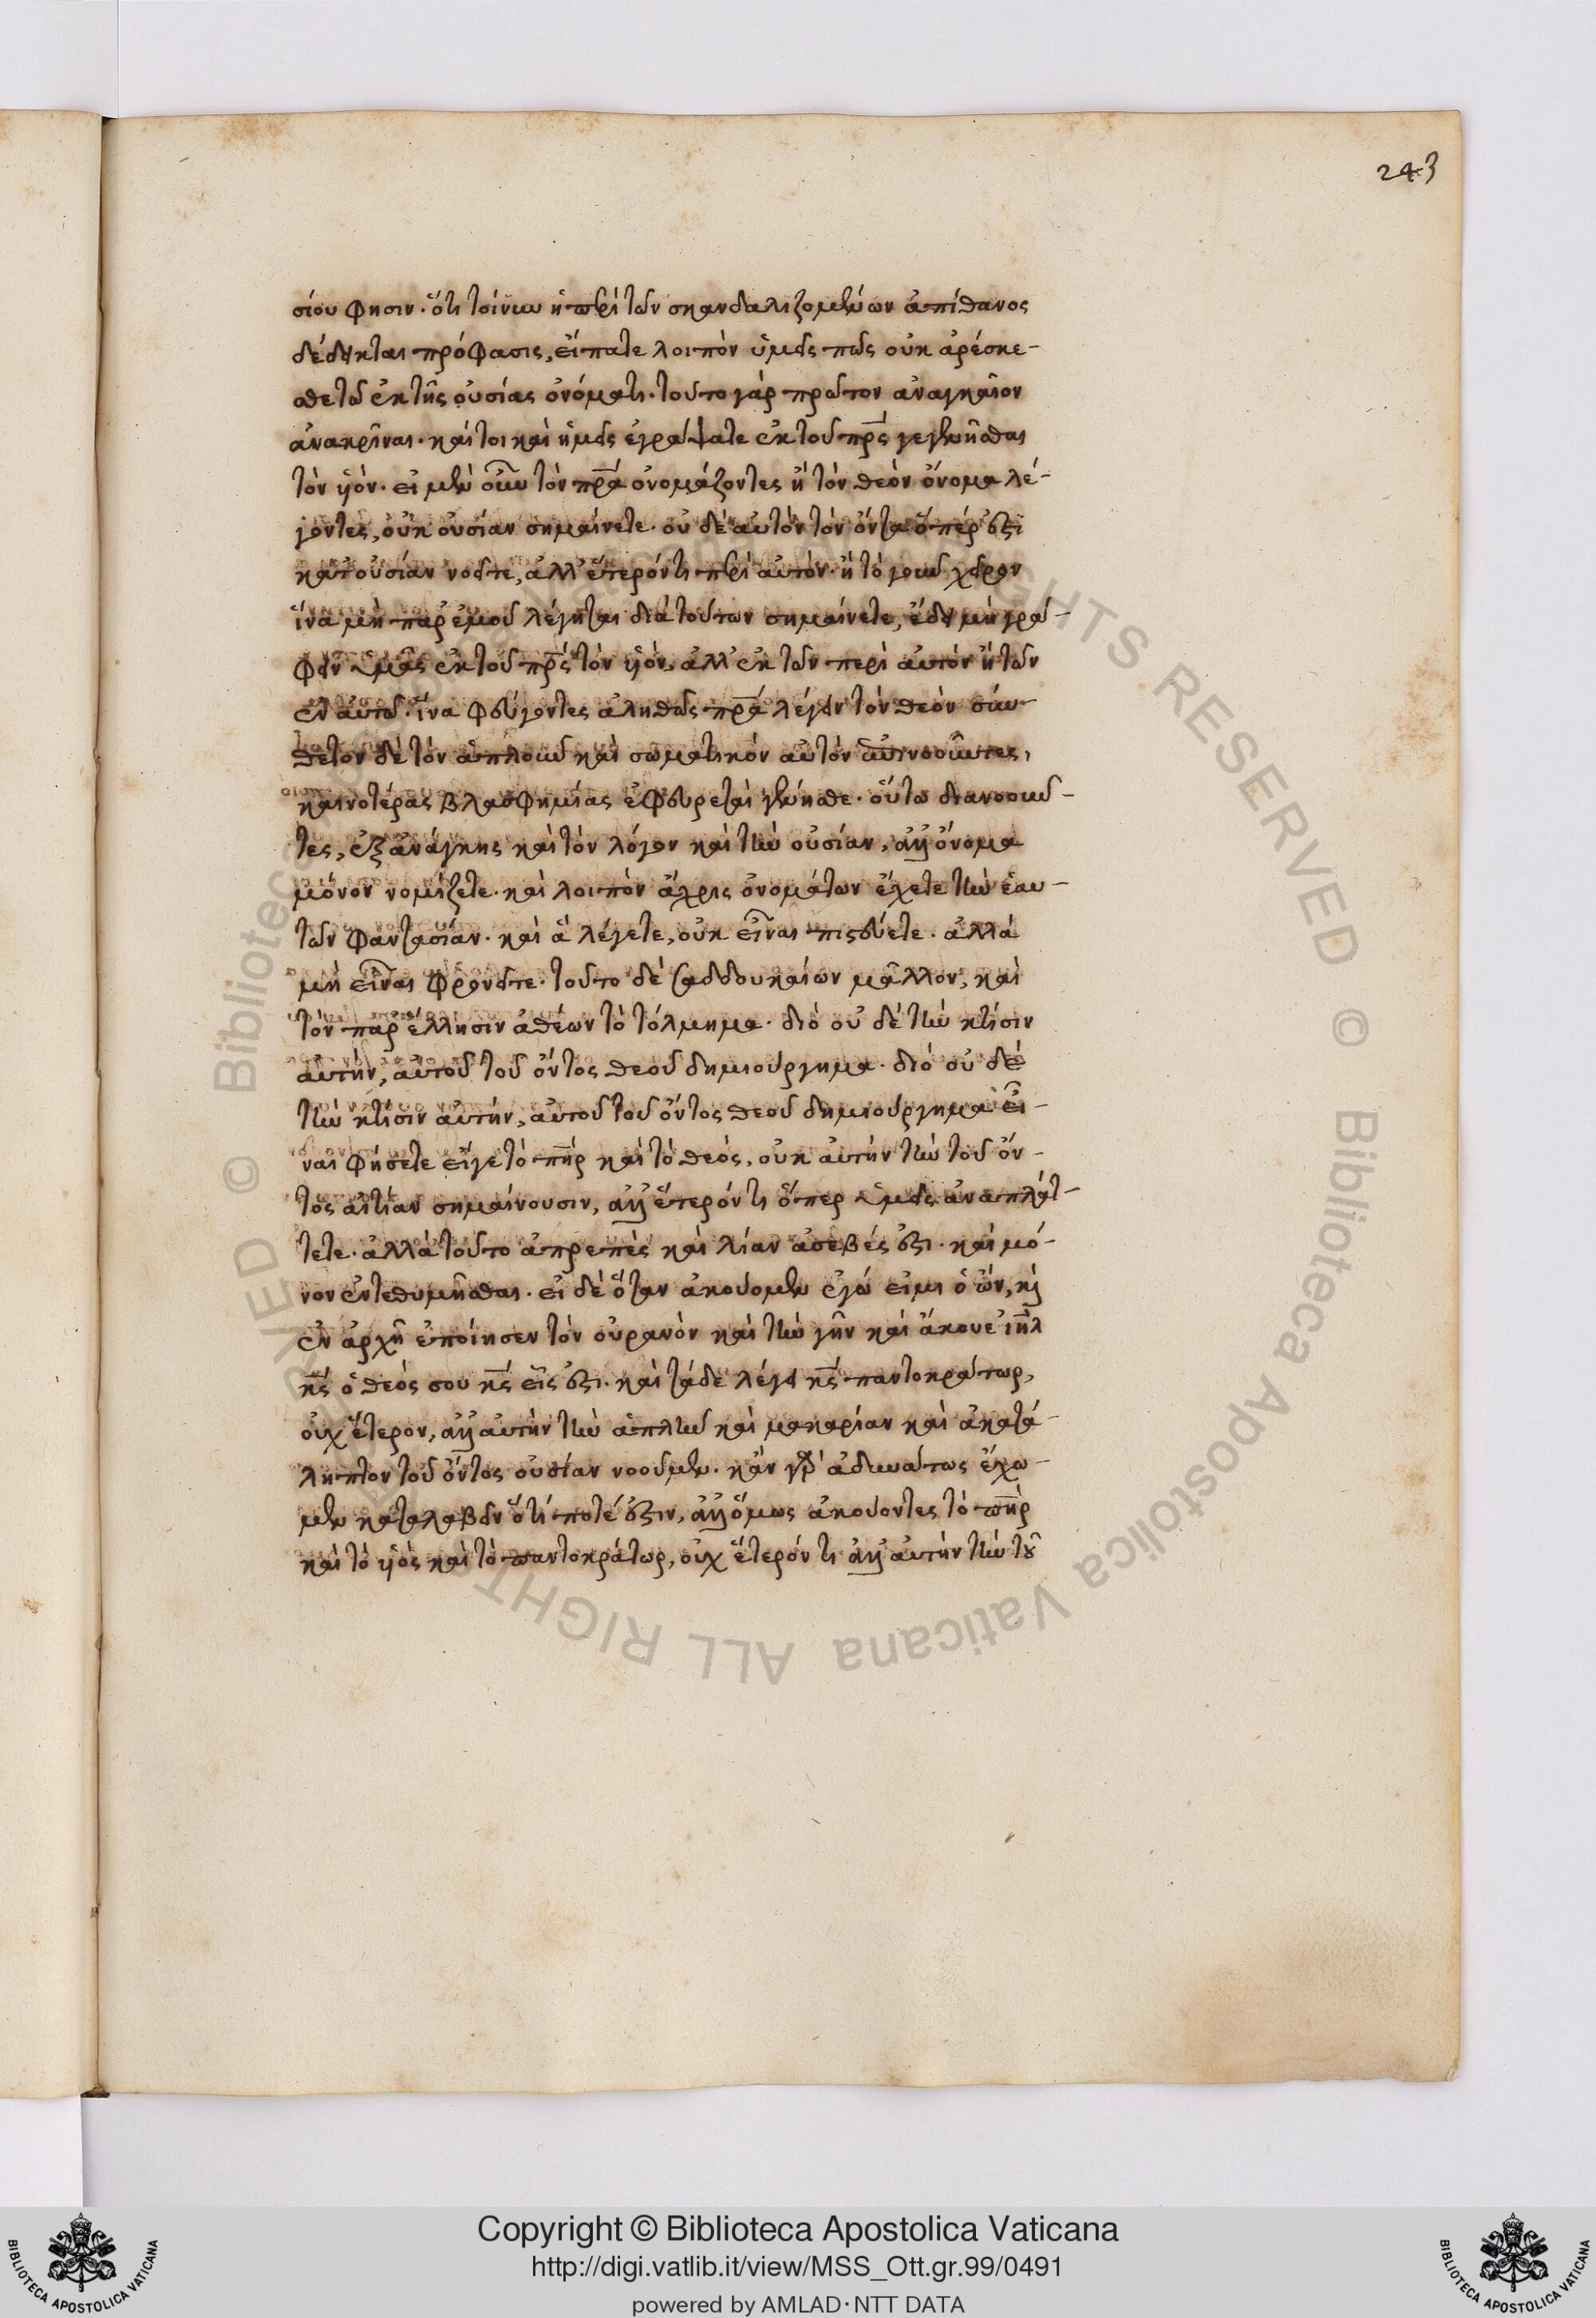 243
σίου φησιν· ὅτι τοίνυν ἡ περὶ τῶν σκανδαλιζομένων ἀπίθανος
δέδεικται πρόφασις, εἴπατε λοιπὸν ὑμεῖς πῶς οὐκ ἀρέσκε-
σθε τῶ ἐκ τῆς οὐσίας ὀνόματι· τοῦτο γὰρ πρῶτον ἀναγκαῖον
ἀνακρῖναι· καίτοι καὶ ὑμεῖς ἐγράψατε ἐκ τοῦ πρς γεγεννῆσθαι
τὸν υἱόν· εἰ μὲν οὖν τὸν πρα ὀνομάζοντες ἢ τὸν θεὸν ὄνομα λέ-
γοντες, οὐκ οὐσίαν σημαίνετε· οὐ δὲ αὐτὸν τὸν ὄντα ὅπέρ ἐστι
κατ' οὐσίαν νοεῖτε, ἀλλ' ἕτερόν τι περὶ αὐτὸν· ἢ τό γουν χεῖρον
ἵνα μὴ παρ' ἐμοῦ λέγηται διὰ τούτων σημαίνετε, ἔδει μὴ γρά-
φειν ὑμᾶς ἐκ τοῦ πρς τὸν υἱὸν, ἀλλ' ἐκ τῶν περὶ αὐτὸν ἢ τῶν
ἐν αὐτῶ· ἵνα φεύγοντες ἀληθῶς πρα λέγειν τὸν θεὸν σύν-
θετον δὲ τὸν ἁπλοῦν καὶ σωματικὸν αὐτὸν ἐπινοοῦντες,
καινοτέρας βλασφημίας ἐφευρεταὶ γένησθε· οὕτω διανοοῦν-
τες, ἐξ ἀνάγκης καὶ τὸν λόγον καὶ τὴν οὐσίαν, ἀλλ' ὄνομα
μόνον νομίζετε· καὶ λοιπὸν ἄχρις ὀνομάτων ἔχετε τὴν ἑαυ-
τῶν φαντασίαν· καὶ ἃ λέγετε, οὐκ εἶναι πιστεύετε· ἀλλὰ
μὴ εἶναι φρονεῖτε· τοῦτο δὲ σαδδουκαίων μᾶλλον, καὶ
τὸν παρ' ἕλλησιν ἀθέων τὸ τόλμημα· διὸ οὐ δὲ τὴν κτίσιν
αὐτὴν, αὐτοῦ τοῦ ὄντος θεοῦ δημιούργημα· διὸ οὐ δὲ
τὴν κτίσιν αὐτὴν, αὐτοῦ τοῦ ὄντος θεοῦ δημιούργημα εἶ-
ναι φήσετε εἴγε τὸ πηρ καὶ τὸ θεός, οὐκ αὐτὴν τὴν τοῦ ὄν-
τος αἰτίαν σημαίνουσιν, ἀλλ' ἕτερόν τι ὅπερ ὑμεῖς ἀναπλάτ-
τετε· ἀλλὰ τοῦτο ἀπρεπὲς καὶ λίαν ἀσεβές ἐστι· καὶ μό-
νον ἐντεθυμῆσθαι· εἰ δὲ ὅταν ἀκούομεν ἐγώ εἰμι ὁ ὤν, καὶ
ἐν ἀρχῆ ἐποίησεν τὸν οὐρανὸν καὶ τὴν γῆν καὶ ἄκουε ἰηλ
κς ὁ θεός σου κς εἷς ἐστι· καὶ τάδε λέγει κς παντοκράτωρ,
οὐχ ἕτερον, ἀλλ' αὐτὴν τὴν ἁπλῆν καὶ μακαρίαν καὶ ἀκατά-
ληπτον τοῦ ὄντος οὐσίαν νοοῦμεν· κἂν γὰρ ἀδυνάτως ἔχω-
μεν καταλαβεῖν ὅτί ποτέ ἐστιν, ἀλλ' ὅμως ἀκούοντες τὸ πηρ
καὶ τὸ υἱὸς καὶ τὸ παντοκράτωρ, οὐχ ἕτερόν τι ἀλλ' αὐτὴν τὴν τοῦ
Copyright © Biblioteca Apostolica Vaticana
http://digi.vatlib.it/view/MSS_Ott.gr.99/0491
powered by AMLAD·NTT DATA
BIBLIOTECA APOSTOLICA VATICANA
BIBLIOTECA APOSTOLICA VATICANA
© Biblioteca Apostolica Vaticana ALL RIGHTS RESERVED